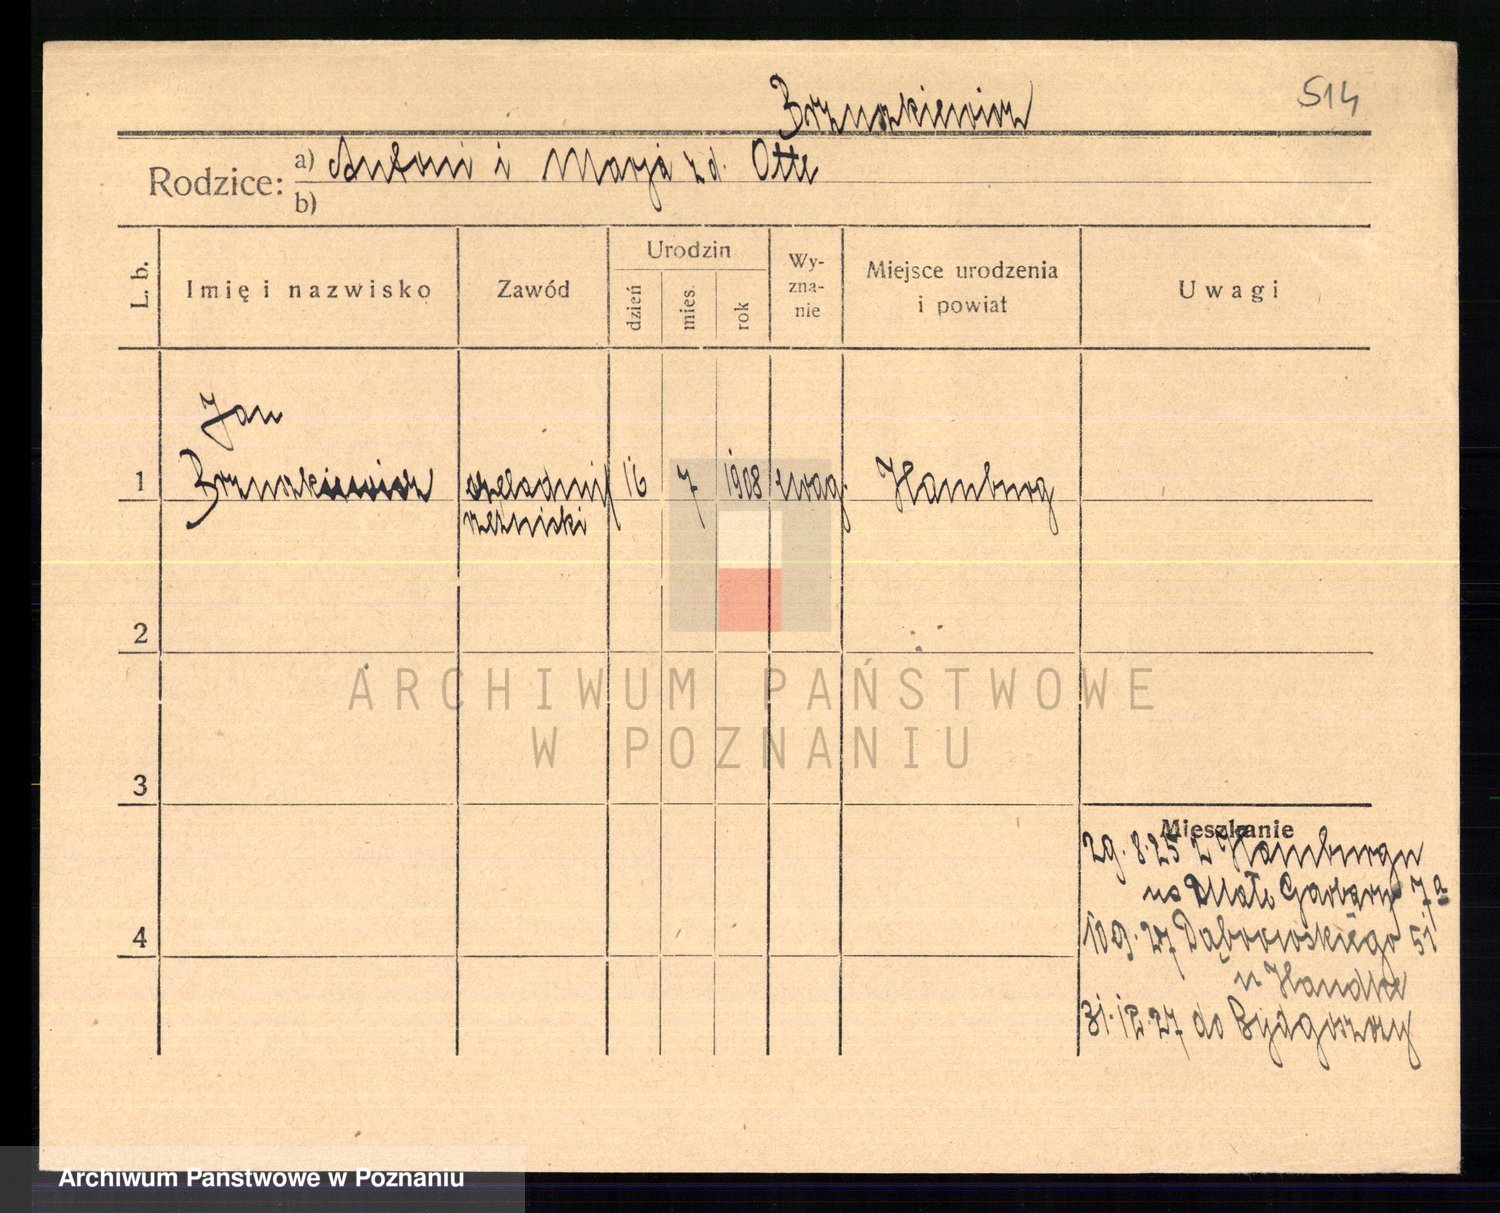 514
Brzuszkiewicz
Rodzice: a) Antoni i Marja z d. Otte
b)
L. b.
Imię i nazwisko
Zawód
Urodzin
dzień
mies.
rok
Wy-
zna-
nie
Miejsce urodzenia
i powiat
Uwagi
Jan
1 Brzuszkiewicz czeladnik 16 7 1908 ewag. Hamburg
rzeźnicki
2
ARCHIWUM PAŃSTWOWE
W POZNANIU
3
Mieszkanie
29.8.25 z Hamburgu
na Małe Garbary 7a
4
10 9.27 Dąbrowskiego 51
u Handke
31.12.27 do Bydgoszczy
Archiwum Państwowe w Poznaniu